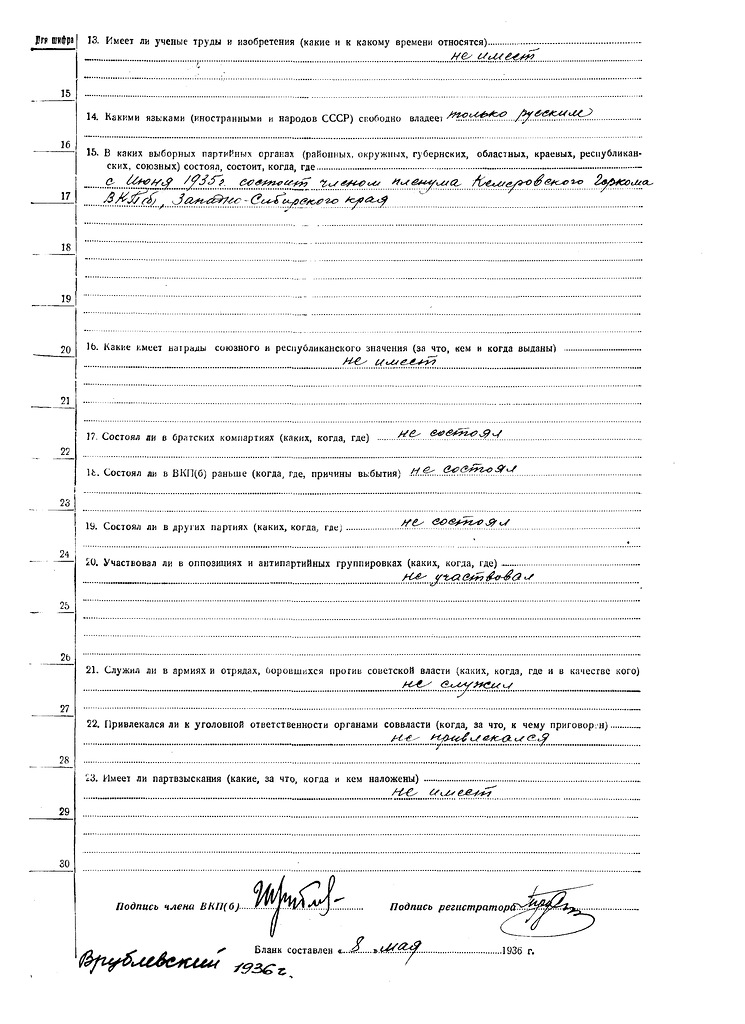 Для шифра
13. Имеет ли ученые труды и изобретения (какие и к какому времени относятся)
не имеет
15
14. Какими языками (иностранными и народов СССР) свободно владеет только русским
16
15. В каких выборных партийных органах (районных, окружных, губернских, областных, краевых, республикан-
ских, союзных) состоял, состоит, когда, где
с Июня 1935г состоит членом пленума Кемеровского Горкома
17
ВКП(б), Западно-Сибирского края
18
19
20
16. Какие имеет награды союзного и республиканского значения (за что, кем и когда выданы)
не имеет
21
17. Состоял ли в братских компартиях (каких, когда, где) не состоял
22
18. Состоял ли в ВКП(б) раньше (когда, где, причины выбытия) не состоял
23
19. Состоял ли в других партиях (каких, когда, где) не состоял
24
20. Участвовал ли в оппозициях и антипартийных группировках (каких, когда, где)
не участвовал
25
26
21. Служил ли в армиях и отрядах, боровшихся против советской власти (каких, когда, где и в качестве кого)
не служил
27
22. Привлекался ли к уголовной ответственности органами соввласти (когда, за что, к чему приговорен)
не привлекался
28
23. Имеет ли партвзыскания (какие, за что, когда и кем наложены)
не имеет
29
30
Подпись члена ВКП(б)
Подпись регистратора
Бланк составлен «8» мая 1936 г.
Врублевский 1936 г.